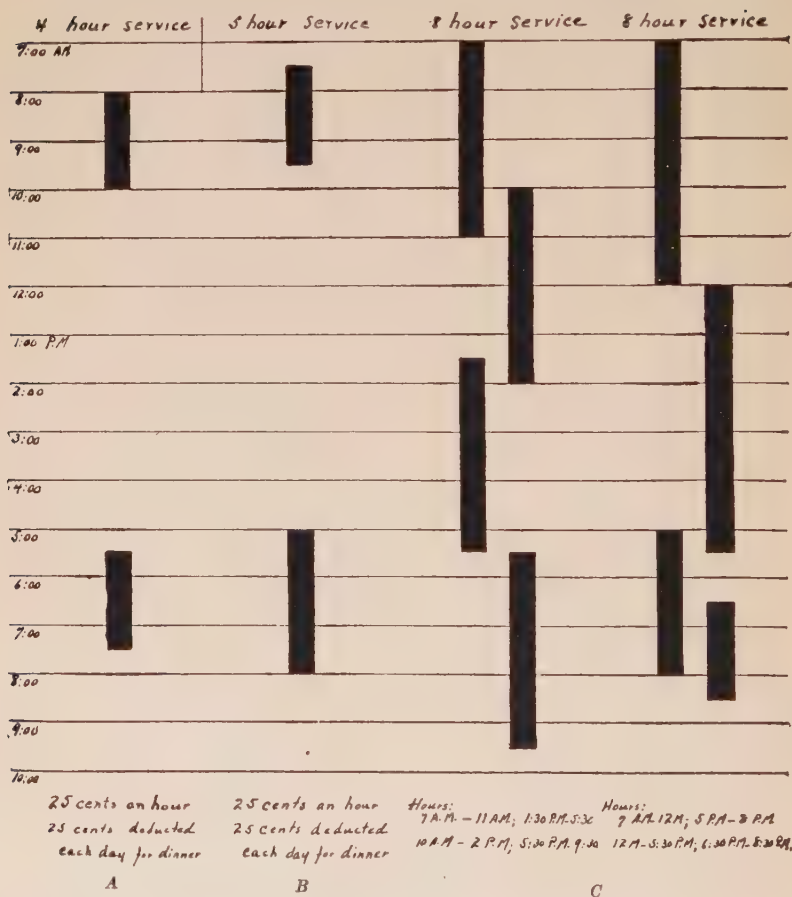 4 hour service 5 hour service 8 hour service 8 hour service
7:00 AM
8:00
9:00
10:00
11:00
12:00
1:00 P.M
2:00
3:00
4:00
5:00
6:00
7:00
8:00
9:00
10:00
25 cents an hour
25 cents deducted
each day for dinner
25 cents an hour
25 cents deducted
each day for dinner
Hours:
7 A.M. - 11 AM; 1:30 P.M-5:30
10 A.M - 2 P.M; 5:30 P.M. 9:30
Hours:
7 A.M-12M; 5 P.M - 8 P.M
12M-5:30 P.M; 6:30 P.M-8:30 P.M.
A B C